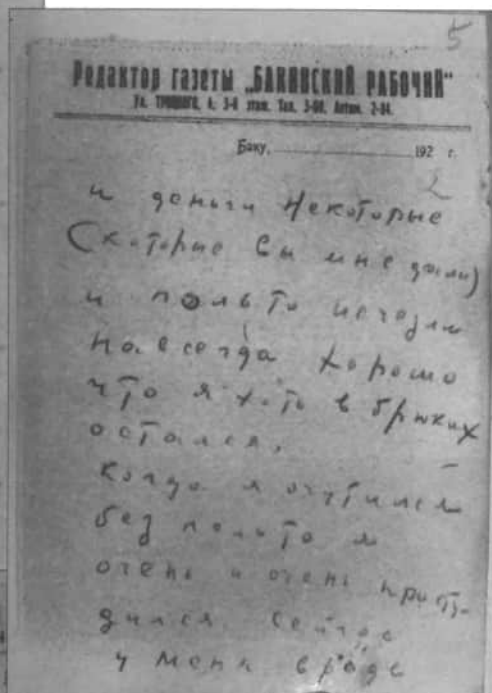 5
Редактор газеты „БАКИНСКИЙ РАБОЧИЙ“
Ул. ТРОЦКОГО, 4. 3-й этаж. Тел. 3-60, Автом. 2-94.
Баку, 192 г.
2
и деньги некоторые
(которые вы мне дали)
и польто исчезли
навсегда хорошо
что я хоть в брюках
остался,
когда я очутился
без польто я
очень и очень просту-
дился. Сейчас
у меня вроде